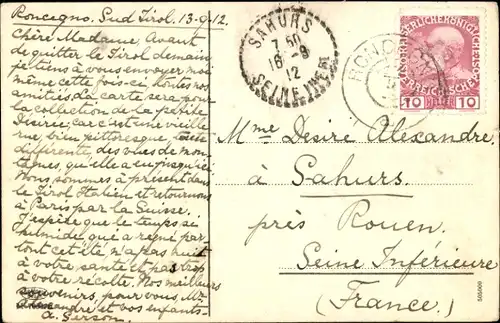 Roncegno. Sud Tirol. 13-9-12
Chère Madame, Avant
de quitter le Tirol demain,
je tiens à vous envoyer moi
même cette fois-ci, toutes nos
amitiés. La carte sera pour
la collection de la petite
Désirée, car c'est une vieille
rue bien pittoresque
différente, des vues de mon
tagnes qu'elle a eu jusqu'ici.
Nous sommes à présent dans
le Tirol Italien et retournons
à Paris par la Suisse.
J'espère que le temps si
humide qui a régné par
tout cet été n'a pas nuit
à votre santé et pas trop
à votre récolte. Nos meilleurs
souvenirs, pour vous, Mr
Alexandre et vos enfants.
A. Gerson.
SAHURS
7 50
16 -9
12
SEINE INFRE
RONC
KAISERLICHE KÖNIGLICHE
ÖSTERREICHISCHE POST
10 HELLER 10
Mme Désiré Alexandre.
à Sahurs.
près Rouen.
Seine Inférieure
(France.)